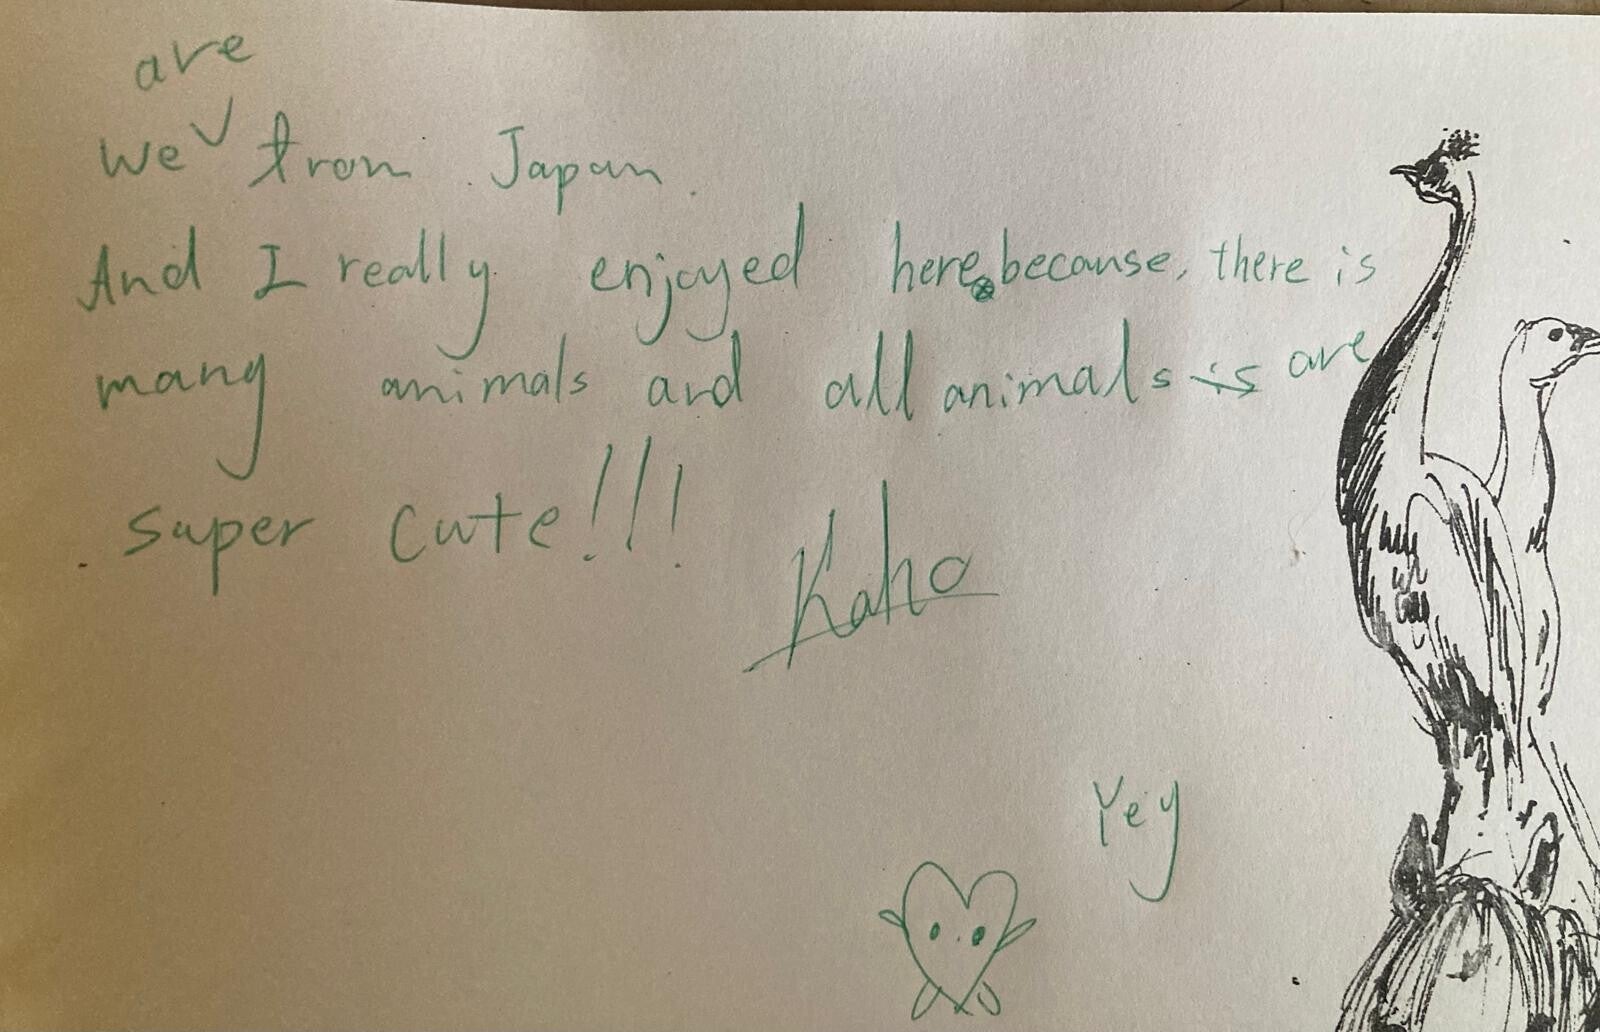 We are from Japan.
And I really enjoyed here because, there is
many animals and all animals is are
super cute!!!
Kaho
Yey